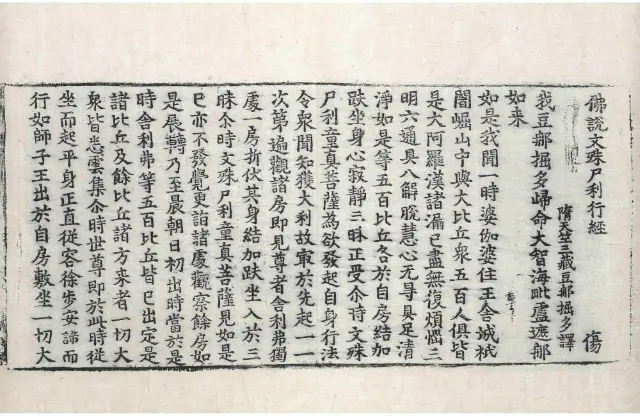 佛說文殊尸利行經 傷
隋天竺三藏豆郍掘多譯
我豆郍掘多歸命大智海毗盧遮郍
如来
如是我聞一時婆伽婆住王舍城祇
闍崛山中與大比丘衆五百人俱皆
是大阿羅漢諸漏已盡無復煩惱三
明六通具八解脫慧心无导具足清
淨如是等五百比丘各於自房結加
趺坐身心寂靜三昧正受尒時文殊
尸利童真菩薩為欲發起自身行法
令衆聞知獲大利故敢於先起一一
次第遍觀諸房即見尊者舍利弗獨
處一房折伏其身結加趺坐入於三
昧尒時文殊尸利童真菩薩見如是
已亦不發覺更詣諸處觀察餘房如
是展轉乃至晨朝日初出時當於是
時舍利弗等五百比丘皆已出定是
諸比丘及餘比丘諸方来者一切大
衆皆悉雲集尒時世尊即於此時從
坐而起平身正直從容徐步安諦而
行如師子王出於自房敷坐一切大